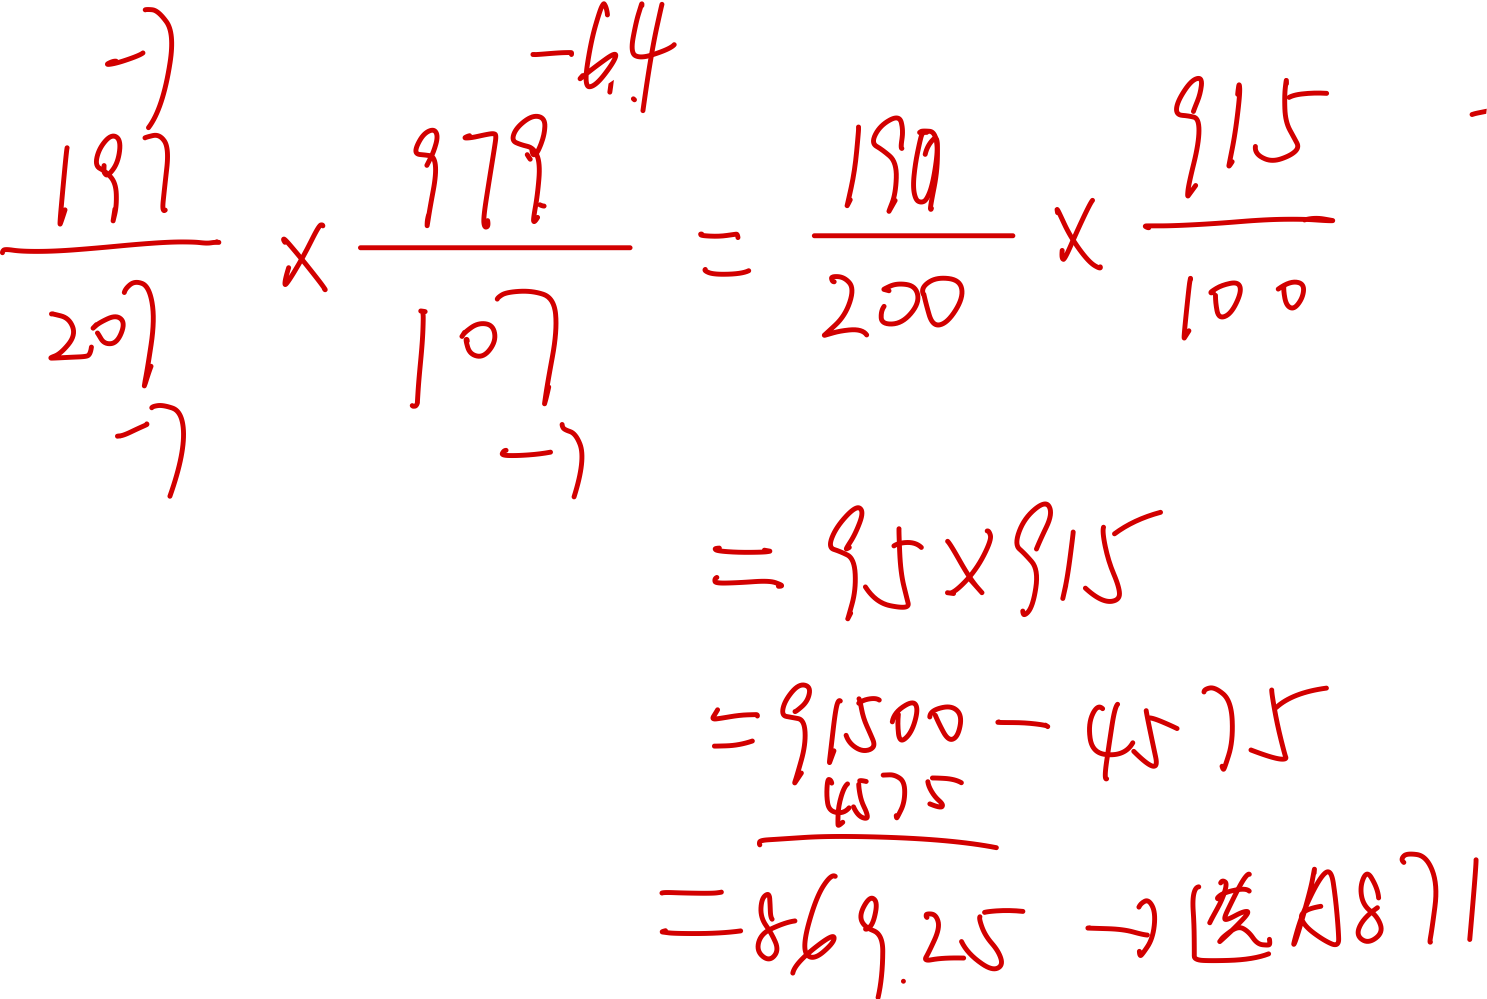 -7
-6.4
197/207 × 979/107 = 190/200 × 915/100 -
-7
-7
= 95×915
= 91500 - 4575
4575
= 869.25 → 选A871